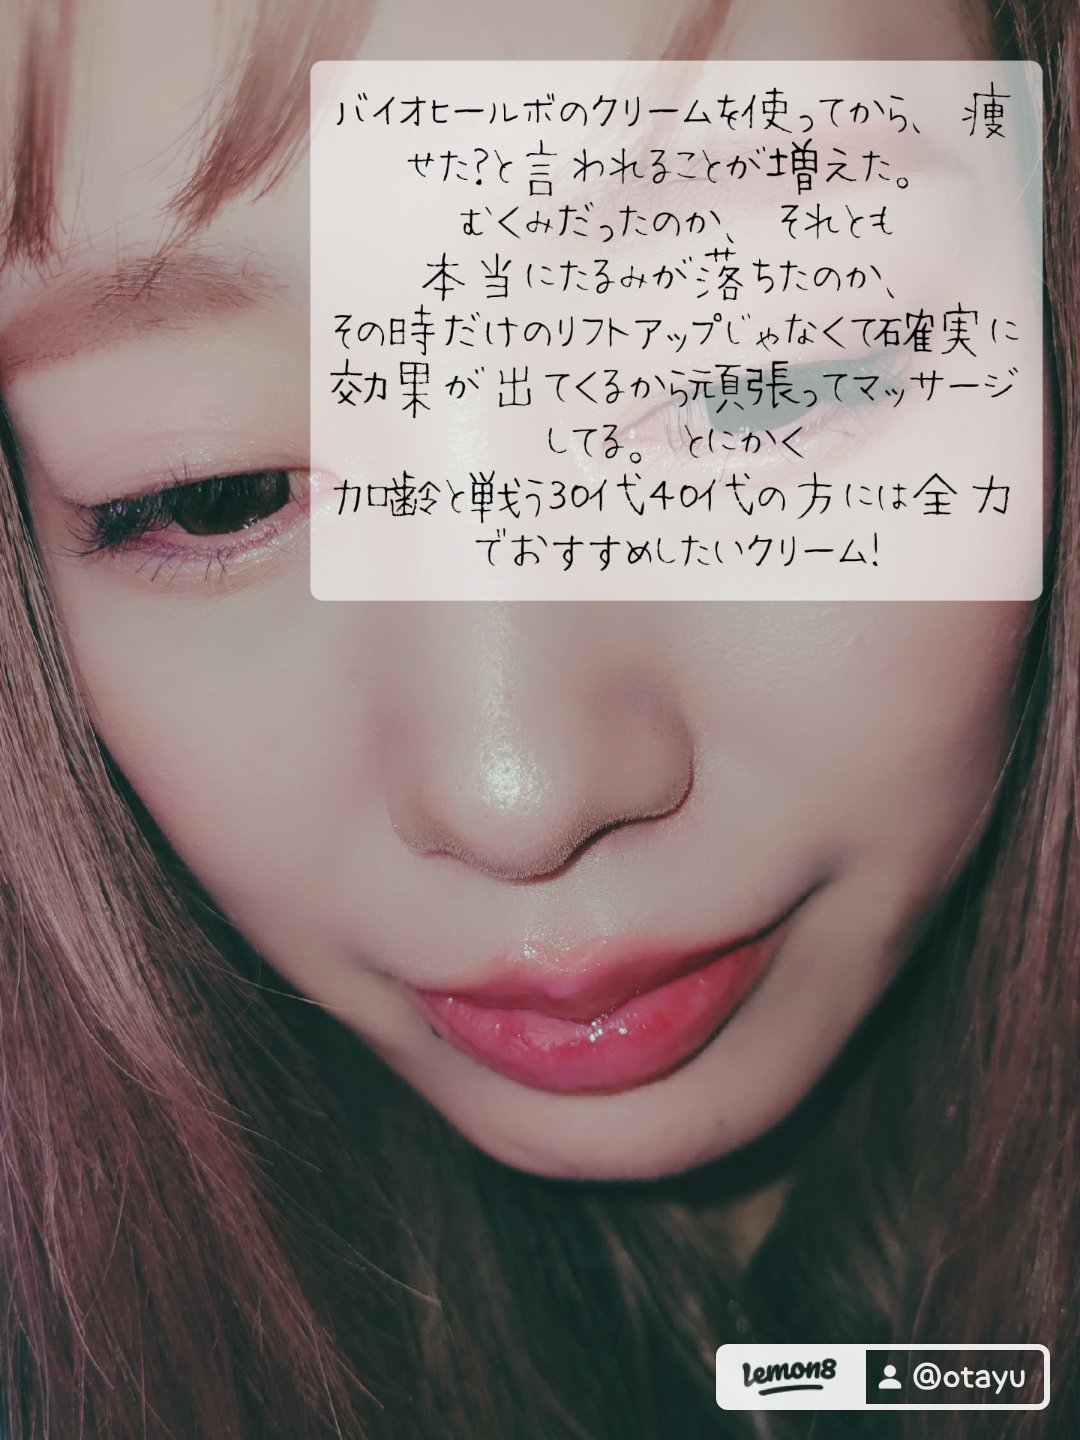 バイオヒールボのクリームを使ってから、痩
せた?と言われることが増えた。
むくみだったのか、それとも
本当にたるみが落ちたのか、
その時だけのリフトアップじゃなくて確実に
効果が出てくるから頑張ってマッサージ
してる。とにかく
加齢と戦う30代40代の方には全力
でおすすめしたいクリーム!
Lemon8
@otayu